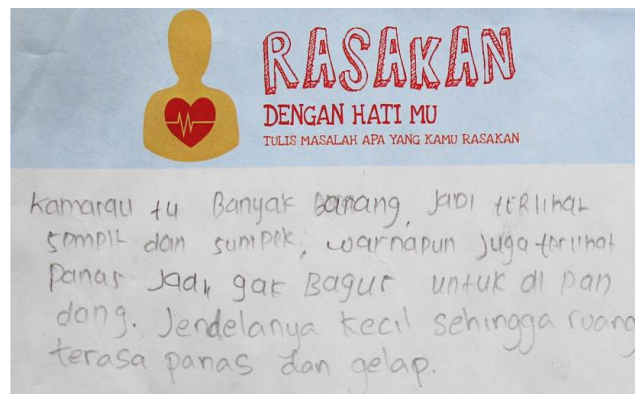 RASAKAN
DENGAN HATI MU
TULIS MASALAH APA YANG KAMU RASAKAN
kamarqu tu Banyak Barang, JaDI teRlihat
sempit dan sumpek, warnapun Juga terlihat
Panas Jadi gak Bagus untuk di pan
dang. Jendelanya kecil sehingga ruang
terasa panas dan gelap.